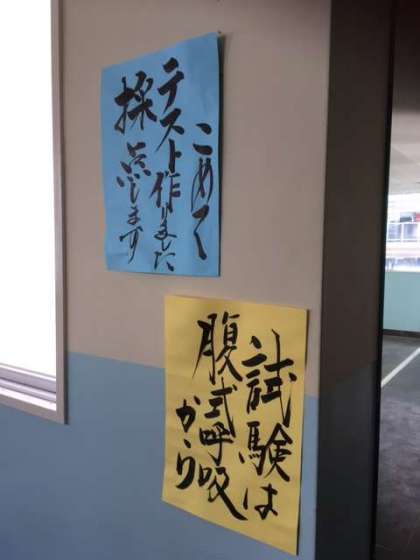 こめて
テスト作りました
採点します
試験は
腹式呼吸
から